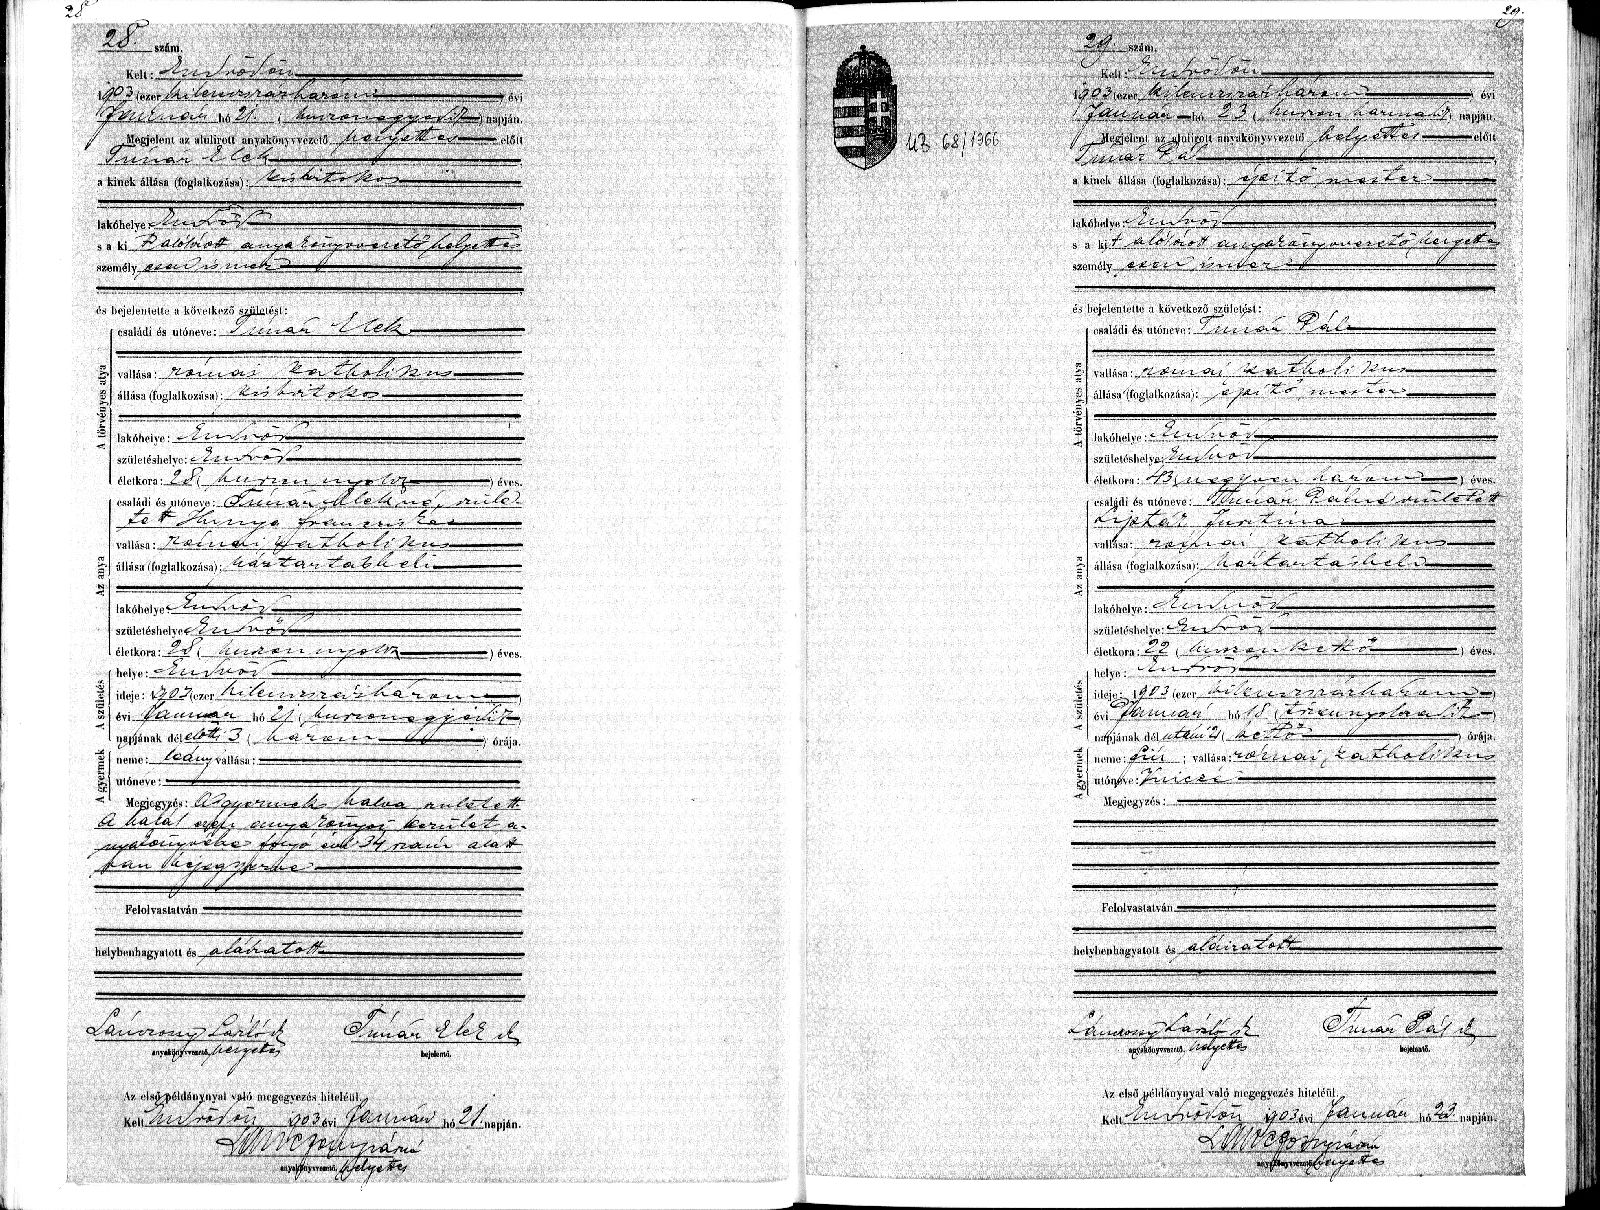 28
28. szám.
Kelt: Endrődön
1903 (ezer kilenczszázhárom ) évi
Január hó 21. ( huszonegyedik ) napján.
Megjelent az alulirott anyakönyvvezető helyettes előtt
Timár Elek
a kinek állása (foglalkozása): kisbirtokos
lakóhelye: Endrőd
s a ki t alólirott anyakönyvvezető helyettes
személyesen ismer
és bejelentette a következő születést:
A törvényes atya
családi és utóneve: Timár Elek
vallása: római katholikus
állása (foglalkozása): kisbirtokos
lakóhelye: Endrőd
születéshelye: Endrőd
életkora: 28 ( huszonnyolcz ) éves.
Az anya
családi és utóneve: Timár Elekné, szüle
tett Hunya Francziska
vallása: római katholikus
állása (foglalkozása): háztartásbeli
lakóhelye: Endrőd
születéshelye: Endrőd
életkora: 28 ( huszonnyolcz ) éves.
A születés
helye: Endrőd
ideje: 1903 (ezer kilenczszázhárom )
évi Január hó 21 ( huszonegyedik )
napjának dél előtti 3 ( három ) órája.
A gyermek
neme: leány vallása:
utóneve:
Megjegyzés: A gyermek halva született
A halál ezen anyakönyvi kerület a-
nyakönyvébe folyó évi 34 szám alatt
van bejegyezve
Felolvastatván
helybenhagyatott és aláiratott
Lánczony László sk Timár Elek sk
anyakönyvvezető, helyettes bejelentő.
Az első példánynyal való megegyezés hiteléül.
Kelt Endrődön 1903 évi Január hó 21. napján.
anyakönyvvezető, helyettes
ÜB 68/1966
29.
29 szám.
Kelt: Endrődön
1903 (ezer kilenczszázhárom ) évi
Január hó 23 ( huszonharmadik ) napján.
Megjelent az alulirott anyakönyvvezető helyettes előtt
Timár Pál
a kinek állása (foglalkozása): épitő mester
lakóhelye: Endrőd
s a ki t alólirott anyakönyvvezető helyettes
személyesen ismer
és bejelentette a következő születést:
A törvényes atya
családi és utóneve: Timár Pál
vallása: római katholikus
állása (foglalkozása): épitő mester
lakóhelye: Endrőd
születéshelye: Endrőd
életkora: 43 ( negyvenhárom ) éves.
Az anya
családi és utóneve: Timár Pálné született
Liptár Jusztina
vallása: római katholikus
állása (foglalkozása): háztartásbeli
lakóhelye: Endrőd
születéshelye: Endrőd
életkora: 22 ( huszonkettő ) éves.
A születés
helye: Endrőd
ideje: 1903 (ezer kilenczszázhárom )
évi Január hó 18 ( tizennyolczadik )
napjának dél utáni 2 ( kettő ) órája.
A gyermek
neme: fiú ; vallása: római katholikus
utóneve: Vincze
Megjegyzés:
Felolvastatván
helybenhagyatott és aláiratott
Lánczony László sk Timár Pál sk
anyakönyvvezető, helyettes bejelentő.
Az első példánynyal való megegyezés hiteléül.
Kelt Endrődön 1903 évi Január hó 23. napján.
anyakönyvvezető, helyettes